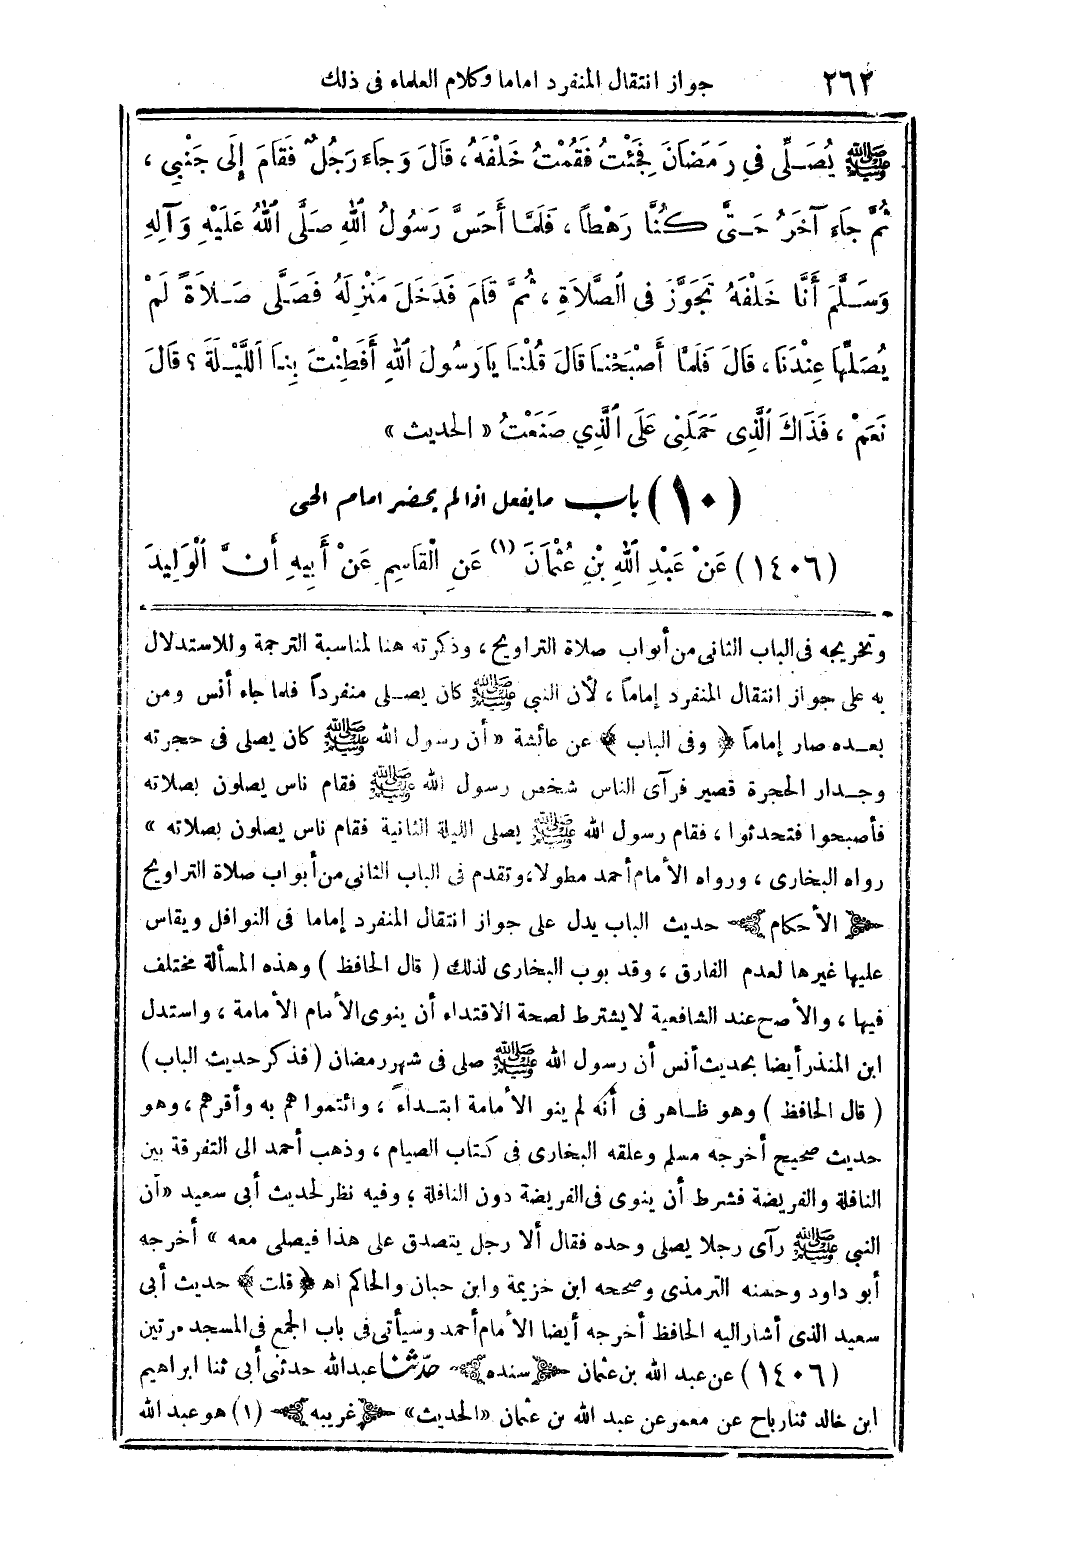 ٢٦٢ جواز انتقال المنفرد اماما وكلام العلماء فى ذلك
ﷺ يُصَلِّى فِى رَمَضَانَ فَجِئْتُ فَقُمْتُ خَلْفَهُ، قَالَ وَجَاءَ رَجُلٌ فَقَامَ إِلَى جَنْبِى ،
ثُمَّ جَاءَ آخَرُ حَتَّى كُنَّا رَهْطاً ، فَلَمَّا أَحَسَّ رَسُولُ اللهِ صَلَّى اللهُ عَلَيْهِ وَآلِهِ
وَسَلَّمَ أَنَّا خَلْفَهُ تَجَوَّزَ فِى الصَّلاَةِ ، ثُمَّ قَامَ فَدَخَلَ مَنْزِلَهُ فَصَلَّى صَلاَةً لَمْ
يُصَلِّهَا عِنْدَنَا ، قَالَ فَلَمَّا أَصْبَحْنَا قَالَ قُلْنَا يَا رَسُولَ اللهِ أَفَطِنْتَ بِنَا اللَّيْلَةَ ؟ قَالَ
نَعَمْ ، فَذَاكَ الَّذِى حَمَلَنِى عَلَى الَّذِي صَنَعْتُ « الحديث »
(١٠) باب ما يفعل اذا لم يحضر امام الحى
(١٤٠٦) عَنْ عَبْدِ اللهِ بْنِ عُثْمَانَ (١) عَنِ الْقَاسِمِ عَنْ أَبِيهِ أَنَّ الْوَلِيدَ
وتخريجه فى الباب الثانى من أبواب صلاة التراويح ، وذكرته هنا لمناسبة الترجمة وللاستدلال
به على جواز انتقال المنفرد إماماً ، لأن النبي ﷺ كان يصلى منفرداً فلما جاء أنس ومن
بعده صار إماماً ﴿ وفى الباب ﴾ عن عائشة « أن رسول الله ﷺ كان يصلى فى حجرته
وجدار الحجرة قصير فرآى الناس شخص رسول الله ﷺ فقام ناس يصلون بصلاته
فأصبحوا فتحدثوا ، فقام رسول الله ﷺ يصلى الليلة الثانية فقام ناس يصلون بصلاته »
رواه البخارى ، ورواه الأمام أحمد مطولا، وتقدم فى الباب الثانى من أبواب صلاة التراويح
﴿ الأحكام ﴾ حديث الباب يدل على جواز انتقال المنفرد إماما فى النوافل ويقاس
عليها غيرها لعدم الفارق ، وقد بوب البخارى لذلك ( قال الحافظ ) وهذه المسألة مختلف
فيها ، والأصح عند الشافعية لا يشترط لصحة الاقتداء أن ينوى الأمام الأمامة ، واستدل
ابن المنذر أيضا بحديث أنس أن رسول الله ﷺ صلى فى شهر رمضان ( فذكر حديث الباب )
( قال الحافظ ) وهو ظاهر فى أنه لم ينو الأمامة ابتداءً ، وائتموا هم به وأقرهم ، وهو
حديث صحيح أخرجه مسلم وعلقه البخارى فى كتاب الصيام ، وذهب أحمد الى التفرقة بين
النافلة والفريضة فشرط أن ينوى فى الفريضة دون النافلة ؛ وفيه نظر لحديث أبى سعيد «أن
النبى ﷺ رآى رجلا يصلى وحده فقال ألا رجل يتصدق على هذا فيصلى معه » أخرجه
أبو داود وحسنه الترمذى وصححه ابن خزيمة وابن حبان والحاكم اه ﴿ قلت ﴾ حديث أبى
سعيد الذى أشار اليه الحافظ أخرجه أيضا الأمام أحمد وسيأتى فى باب الجمع فى المسجد مرتين
(١٤٠٦) عن عبد الله بن عثمان ﴿ سنده ﴾ حدّثنا عبد الله حدثنى أبى ثنا ابراهيم
ابن خالد ثنا رباح عن معمر عن عبد الله بن عثمان «الحديث» ﴿ غريبه ﴾ (١) هو عبد الله